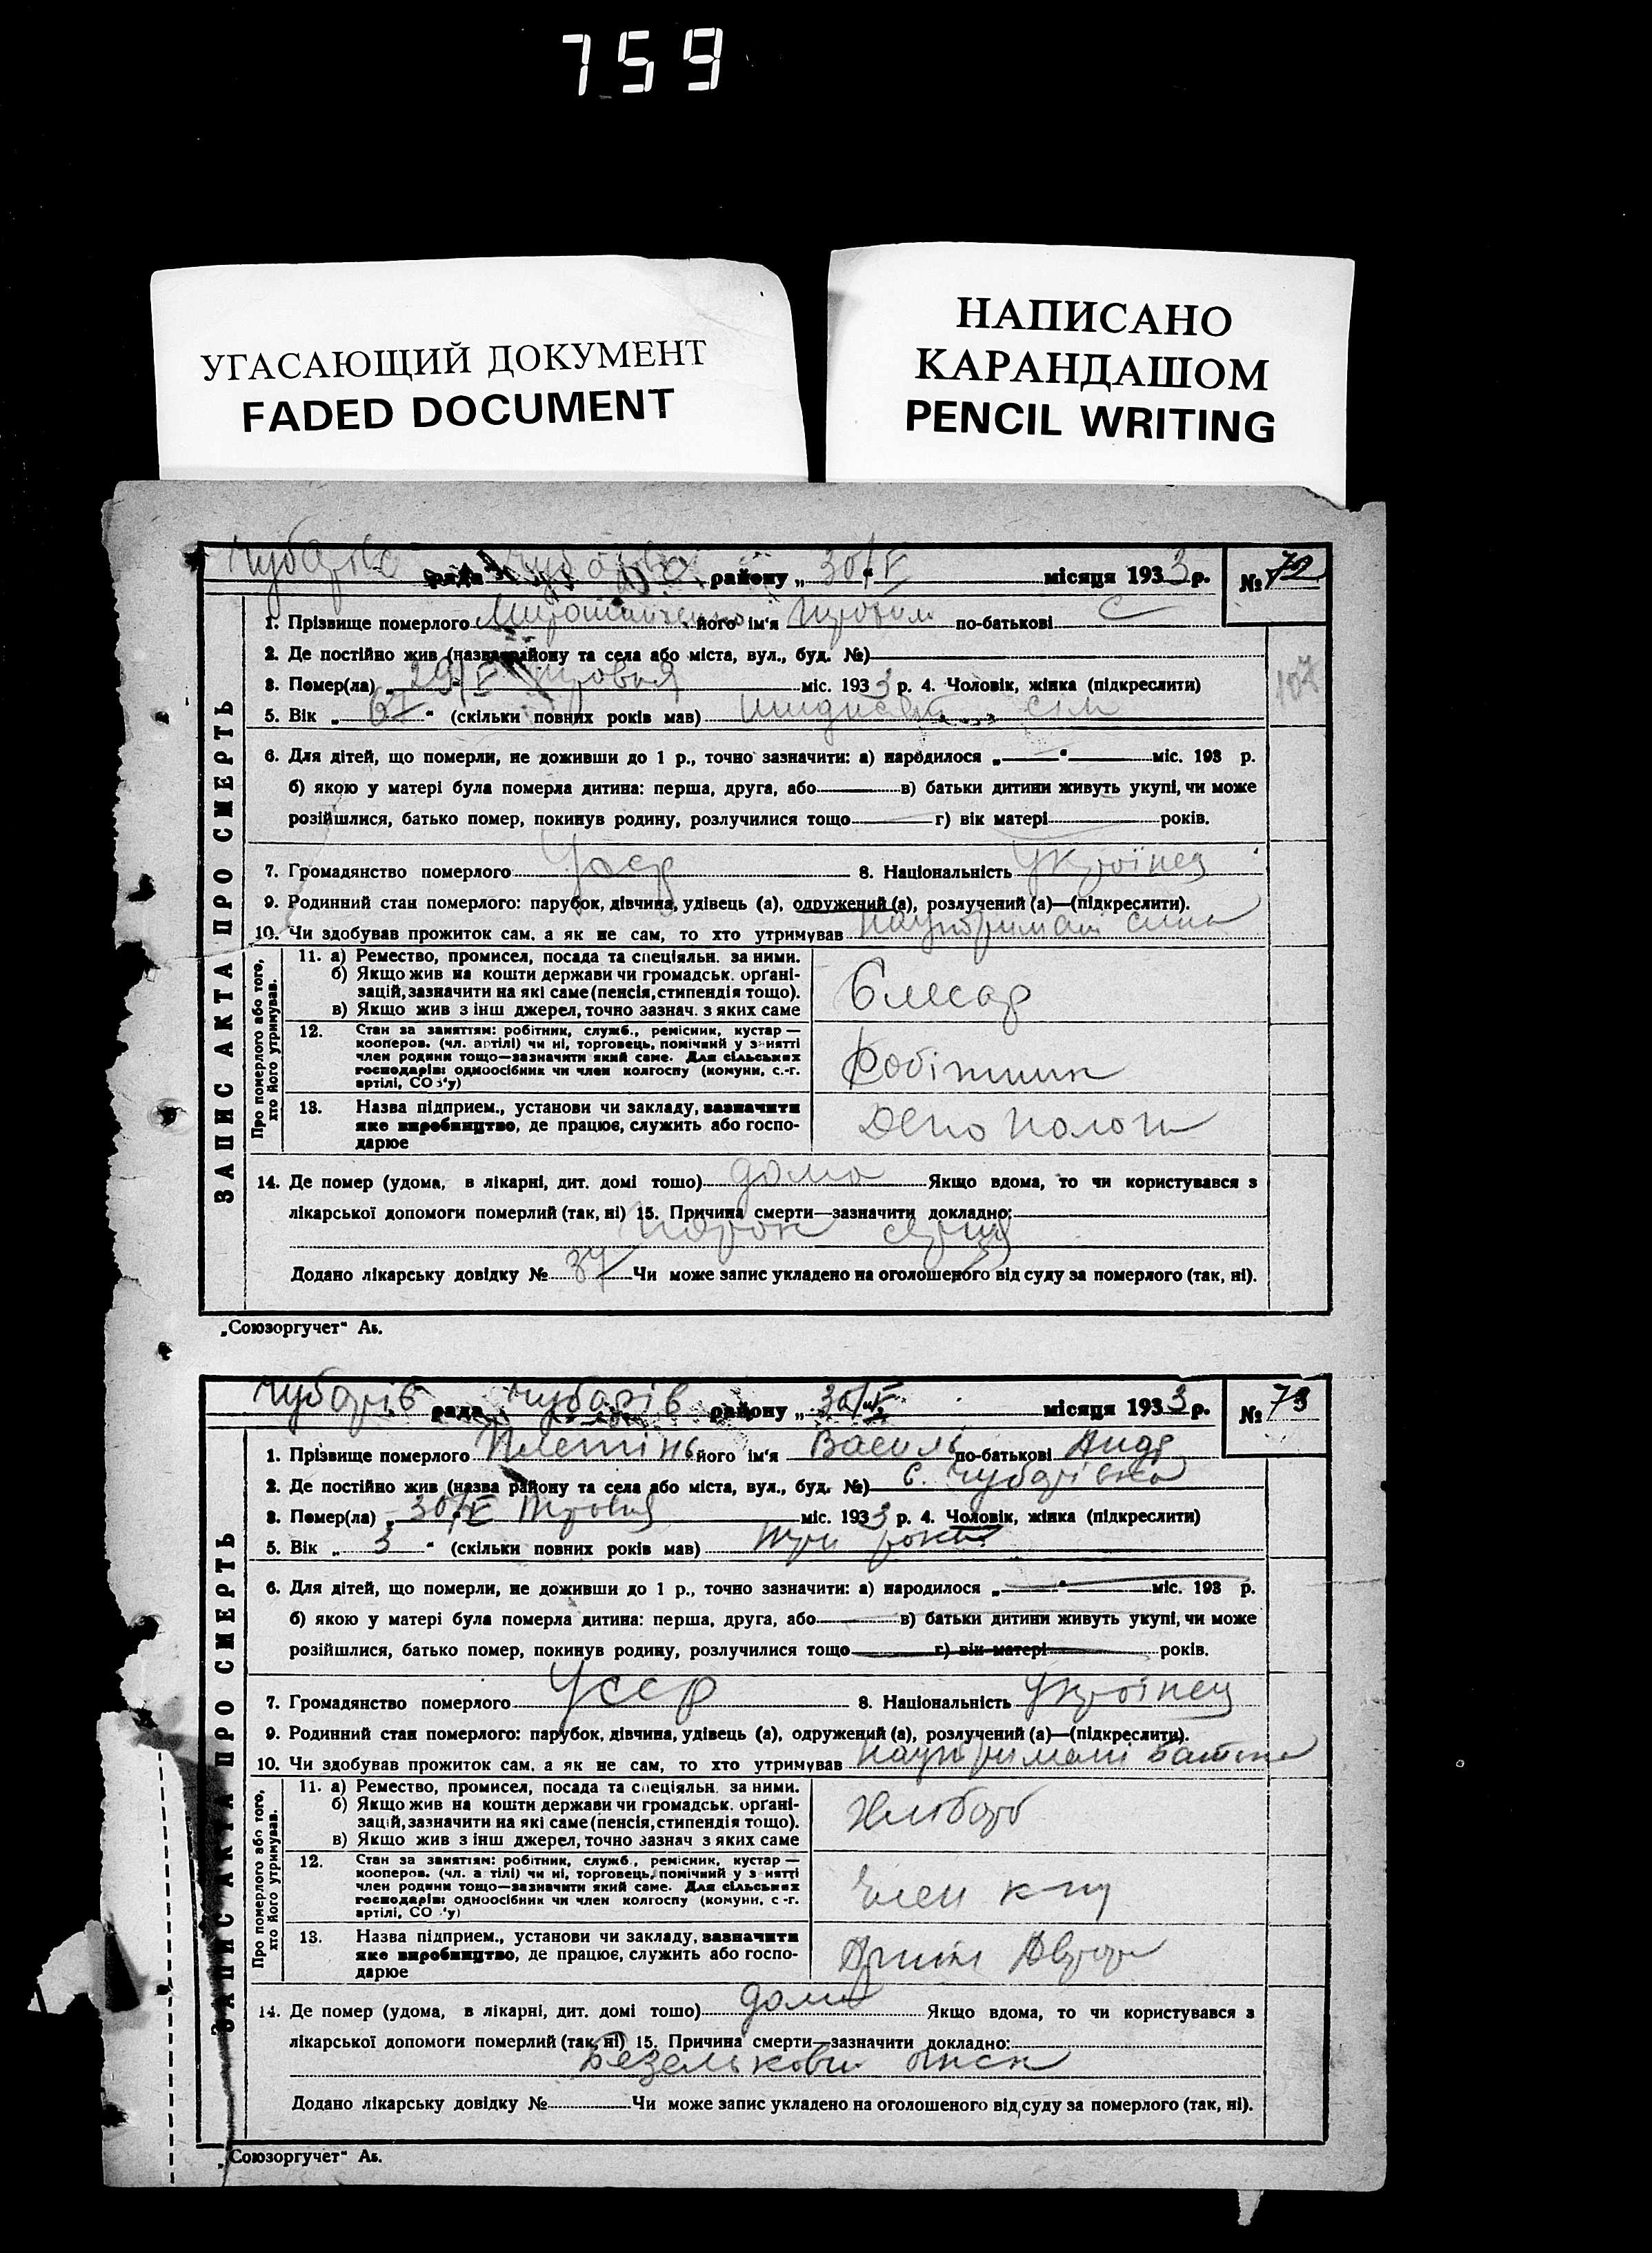 759
УГАСАЮЩИЙ ДОКУМЕНТ
FADED DOCUMENT
НАПИСАНО
КАРАНДАШОМ
PENCIL WRITING
ЗАПИС АКТА ПРО СМЕРТЬ
рада району „30/V“ місяця 1933 р. №72
1. Прізвище померлого його ім'я по-батькові С
2. Де постійно жив (назва району та села або міста, вул., буд. №)
3. Помер(ла) „29/V травня міс. 1933 р. 4. Чоловік, жінка (підкреслити)
5. Вік „67“ (скільки повних років мав) шидисят сім
107
6. Для дітей, що померли, не доживши до 1 р., точно зазначити: а) народилося „—“ міс. 193 р.
б) якою у матері була померла дитина: перша, друга, або в) батьки дитини живуть укупі, чи може
розійшлися, батько помер, покинув родину, розлучилися тощо г) вік матері років.
7. Громадянство померлого Усср 8. Національність Українец
9. Родинний стан померлого: парубок, дівчина, удівець (а), одружений (а), розлучений (а)—(підкреслити).
10. Чи здобував прожиток сам, а як не сам, то хто утримував наутримані сина
Про померлого або того, хто його утримував.
11. а) Ремество, промисел, посада та спеціяльн. за ними.
б) Якщо жив на кошти держави чи громадськ. органі-
зацій, зазначити на які саме (пенсія, стипендія тощо).
в) Якщо жив з інш джерел, точно зазнач. з яких саме
Слесар
12. Стан за заняттям: робітник, служб., ремісник, кустар —
кооперов. (чл. артілі) чи ні, торговець, помічний у занятті
член родини тощо—зазначити який саме. Для сільських
господарів: одноосібник чи член колгоспу (комуни, с.-г.
артілі, СОЗ'у)
Робітник
13. Назва підприєм., установи чи закладу, зазначити
яке виробництво, де працює, служить або госпо-
дарює
Депо Пологи
14. Де помер (удома, в лікарні, дит. домі тощо) дома Якщо вдома, то чи користувався з
лікарської допомоги померлий (так, ні) 15. Причина смерти—зазначити докладно:
Порок серця
Додано лікарську довідку № 37 Чи може запис укладено на оголошеного від суду за померлого (так, ні).
„Союзоргучет“ Аь.
ЗАПИС АКТА ПРО СМЕРТЬ
Чубарів рада Чубарів району „30/V“ місяця 1933 р. №73
1. Прізвище померлого Плетінь його ім'я Василь по-батькові Андр
2. Де постійно жив (назва району та села або міста, вул., буд. №) с. Чубарівка
3. Помер(ла) „30/V травня міс. 1933 р. 4. Чоловік, жінка (підкреслити)
5. Вік „3“ (скільки повних років мав) три роки
6. Для дітей, що померли, не доживши до 1 р., точно зазначити: а) народилося „—“ міс. 193 р.
б) якою у матері була померла дитина: перша, друга, або в) батьки дитини живуть укупі, чи може
розійшлися, батько помер, покинув родину, розлучилися тощо г) вік матері років.
7. Громадянство померлого Усср 8. Національність Українец
9. Родинний стан померлого: парубок, дівчина, удівець (а), одружений (а), розлучений (а)—(підкреслити).
10. Чи здобував прожиток сам, а як не сам, то хто утримував наутримані батька
Про померлого або того, хто його утримував.
11. а) Ремество, промисел, посада та спеціяльн. за ними.
б) Якщо жив на кошти держави чи громадськ. органі-
зацій, зазначити на які саме (пенсія, стипендія тощо).
в) Якщо жив з інш джерел, точно зазнач з яких саме
Хлібороб
12. Стан за заняттям: робітник, служб., ремісник, кустар —
кооперов. (чл. артілі) чи ні, торговець, помічний у занятті
член родини тощо—зазначити який саме. Для сільських
господарів: одноосібник чи член колгоспу (комуни, с-г.
артілі, СОЗ'у)
Член
13. Назва підприєм., установи чи закладу, зазначити
яке виробництво, де працює, служить або госпо-
дарює
14. Де помер (удома, в лікарні, дит. домі тощо) дома Якщо вдома, то чи користувався з
лікарської допомоги померлий (так, ні) 15. Причина смерти—зазначити докладно:
Додано лікарську довідку № Чи може запис укладено на оголошеного від суду за померлого (так, ні).
„Союзоргучет“ Аь.